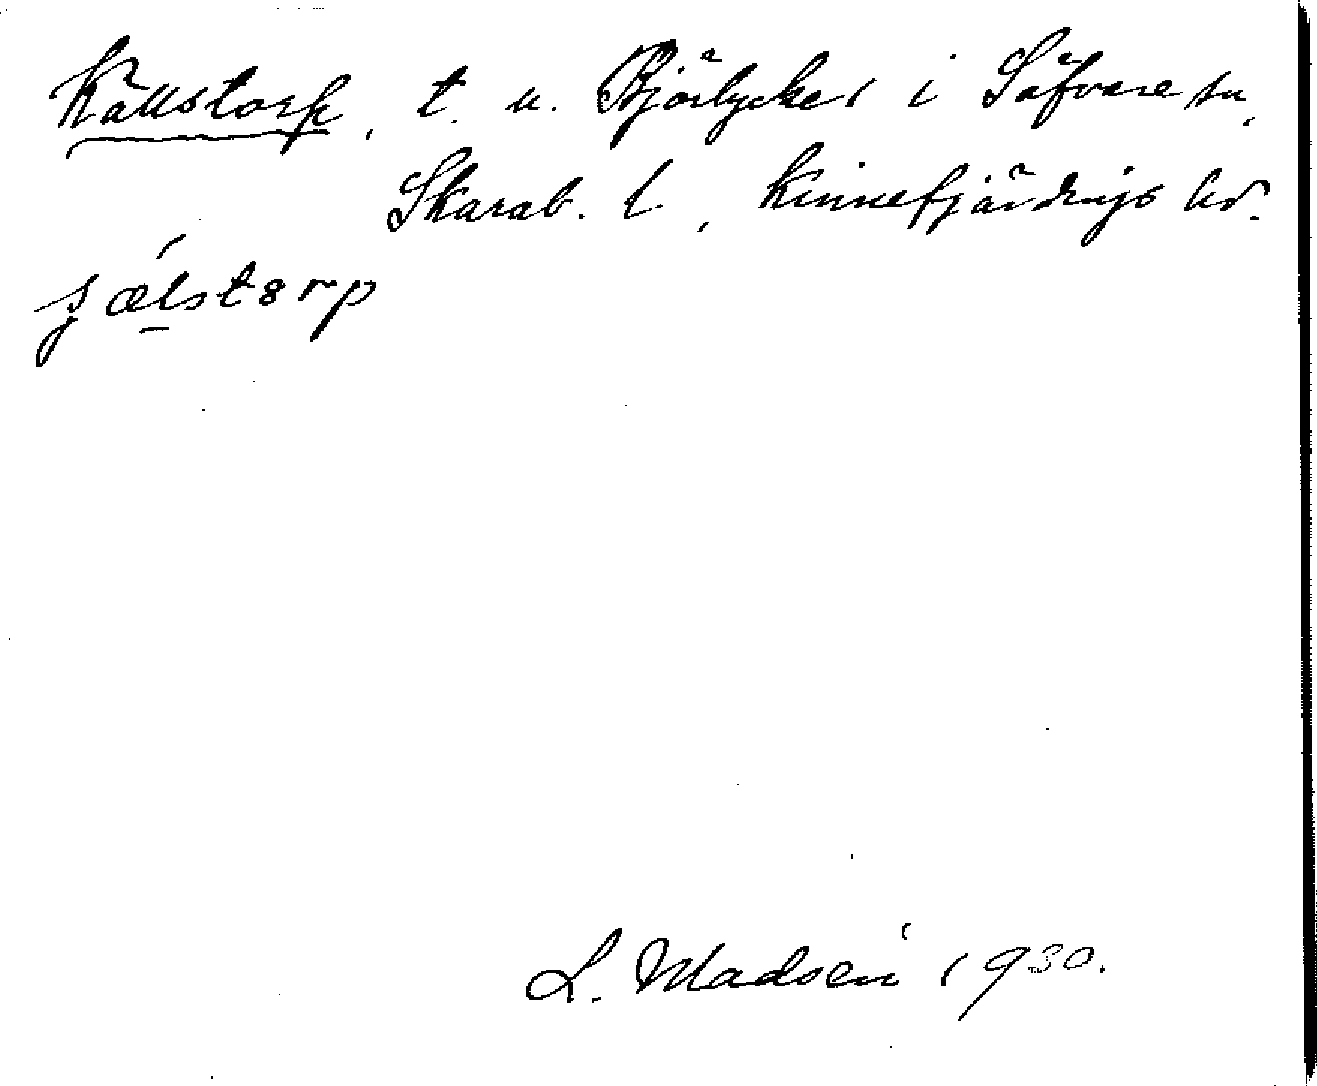 Källstorp, t. u. Björlycke i Säfvare sn,
Skarab. l., Kinnefjärdings hd.
L. Madsén 1930.